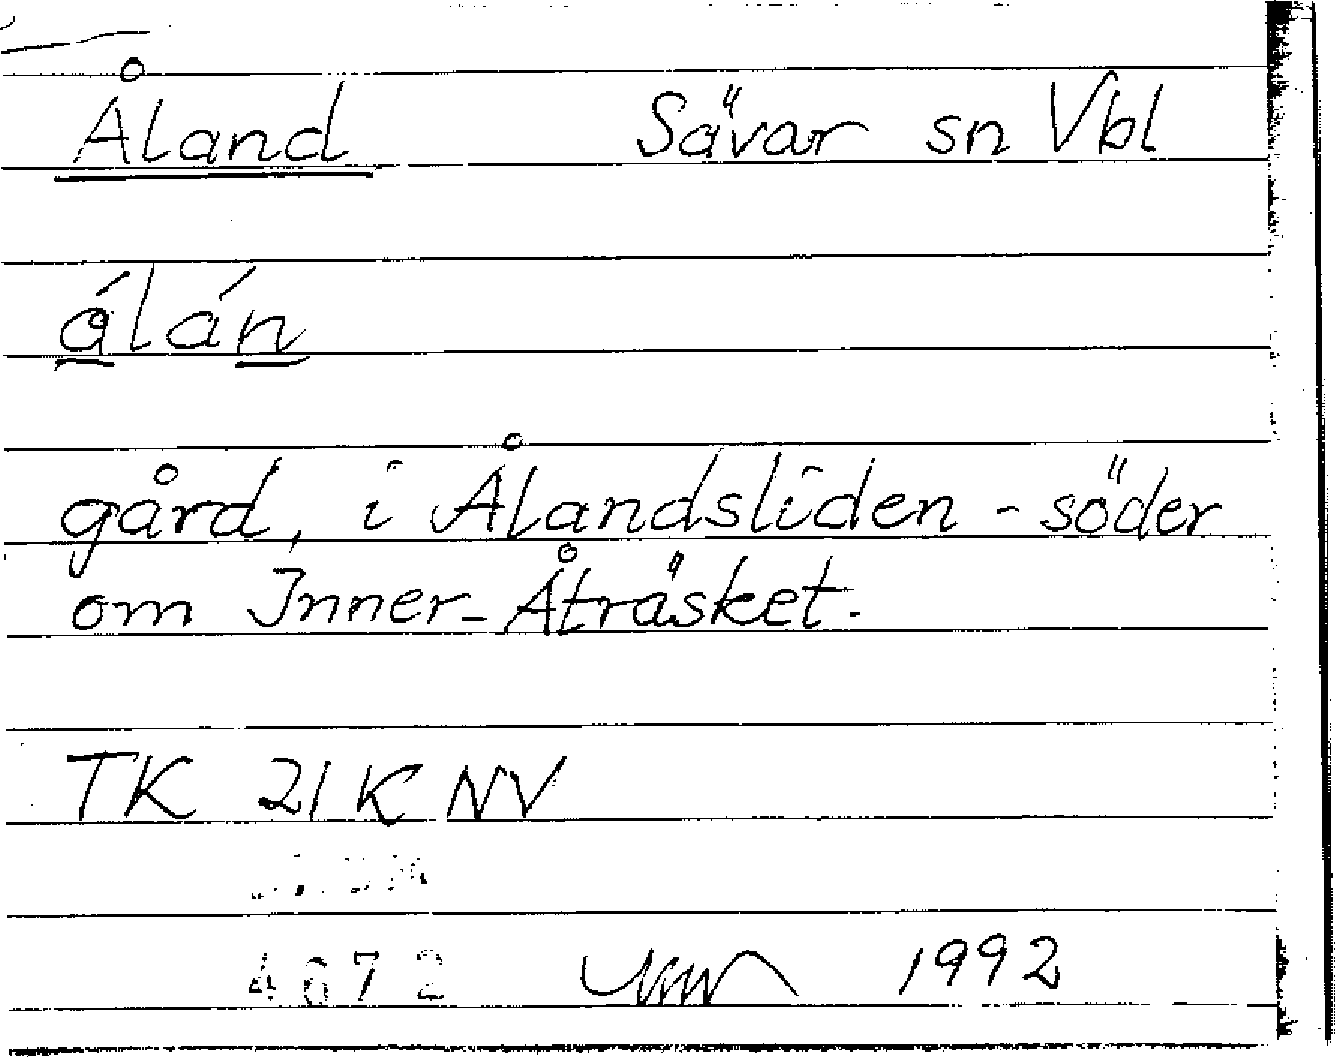 Åland Sävar sn Vbl
ålán
gård, i Ålandsliden - söder
om Inner-Åträsket.
TK 21 K NV
4672 1992